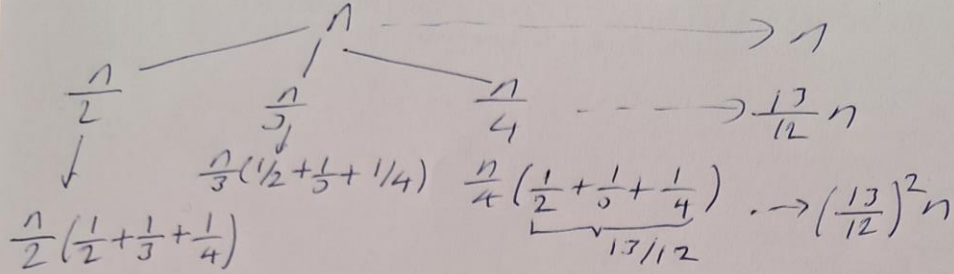 n → n
n/2 n/3 n/4 → 13/12 n
n/3 (1/2 + 1/3 + 1/4) n/4 (1/2 + 1/3 + 1/4) → (13/12)² n
n/2 (1/2 + 1/3 + 1/4) 13/12